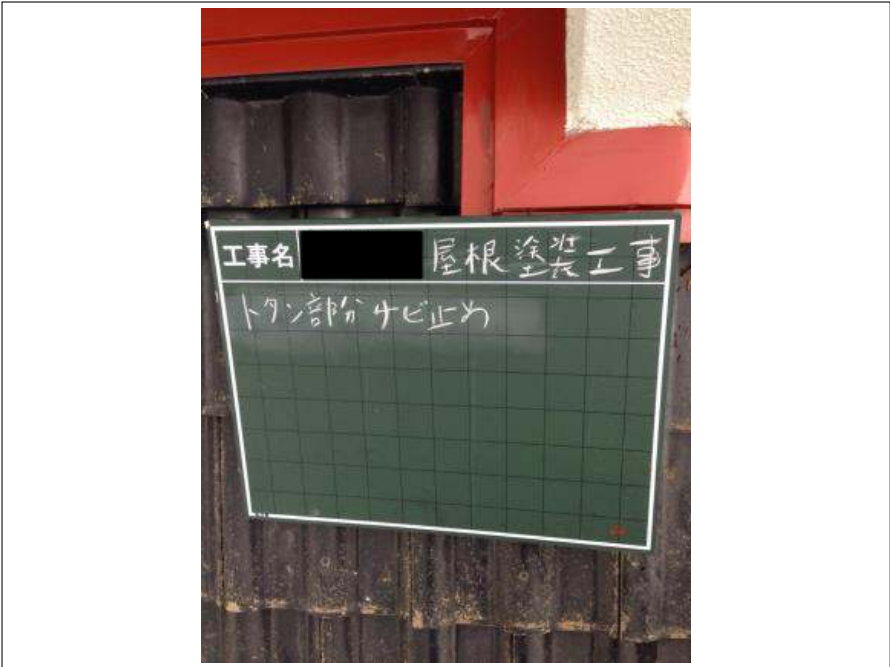 工事名 屋根塗装工事
トタン部分サビ止め